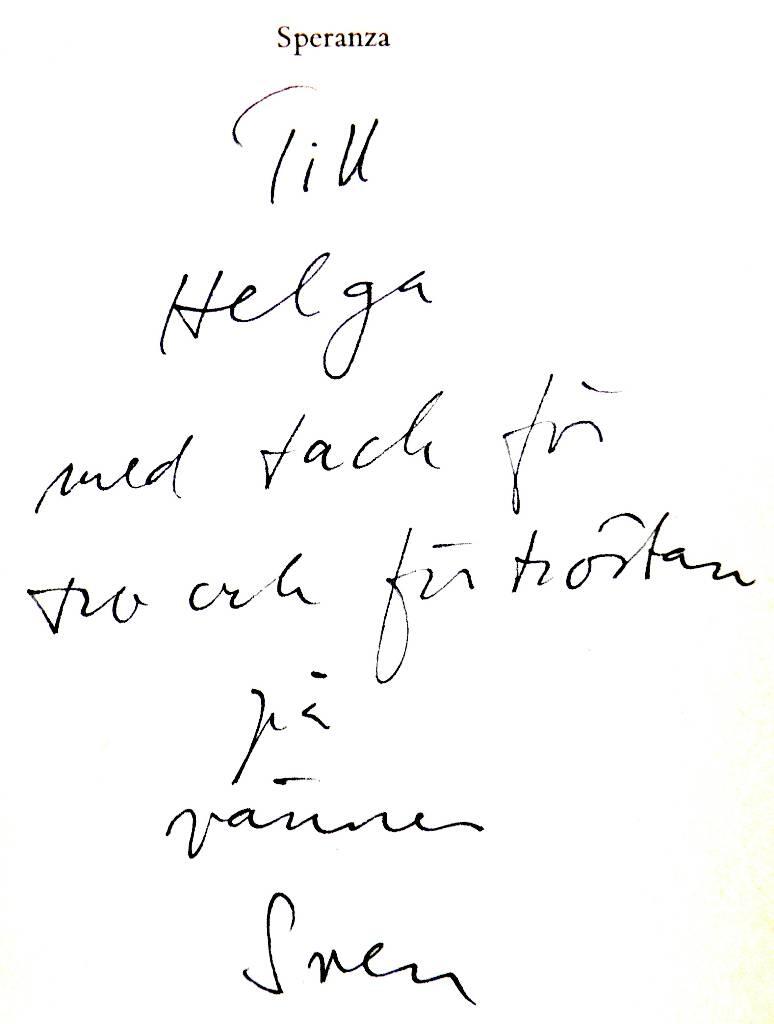 Speranza
Till
Helga
med tack för
tro och förtröstan
på
vännen
Sven